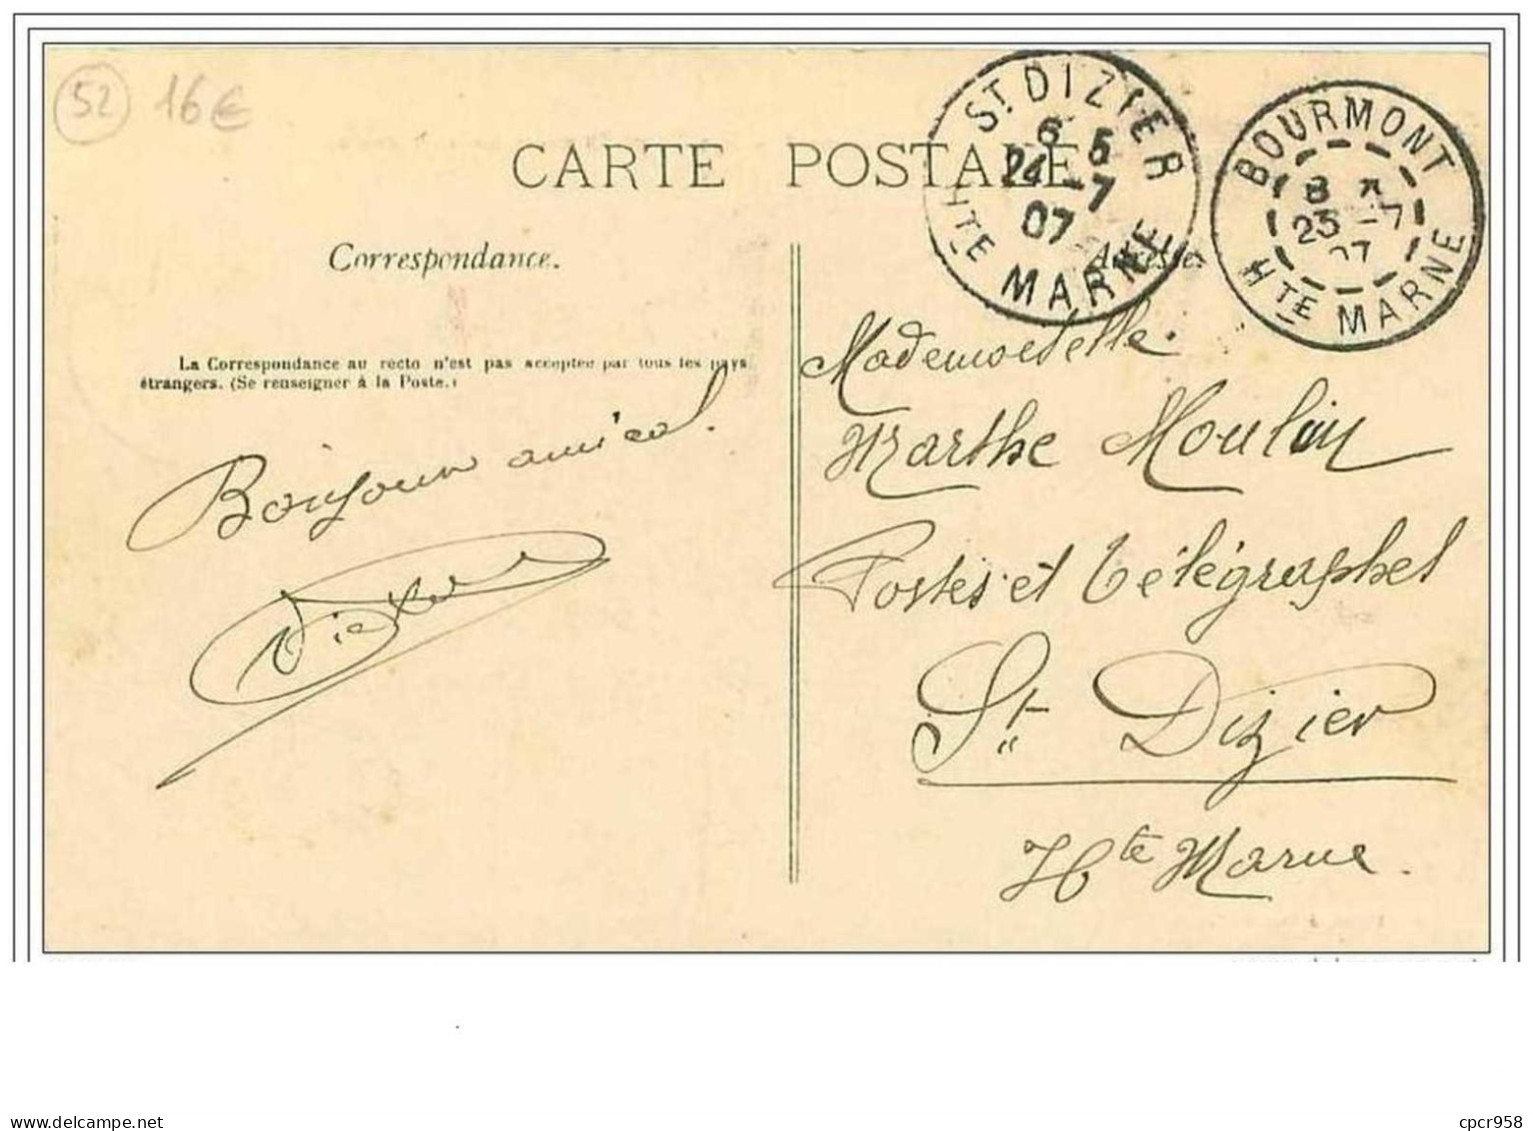 52 16€
CARTE POSTALE
ST DIZIER
6 5
24 -7
07
HTE MARNE
BOURMONT
8
23 -7
07
HTE MARNE
Correspondance.
Adresse
La Correspondance au recto n'est pas acceptée par tous les pays
étrangers. (Se renseigner à la Poste.)
Bonjour amical.
Mademoiselle.
Marthe Moulin
Postes et Télégraphes
St Dizier
Hte Marne.
cpcr958